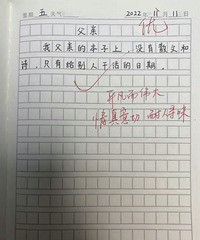 星期 五 天气 2022年 11月 11日
优
父亲
我父亲的本子上,没有散文和
诗,只有给别人干活的日期。
平凡而伟大
情真意切 耐人寻味